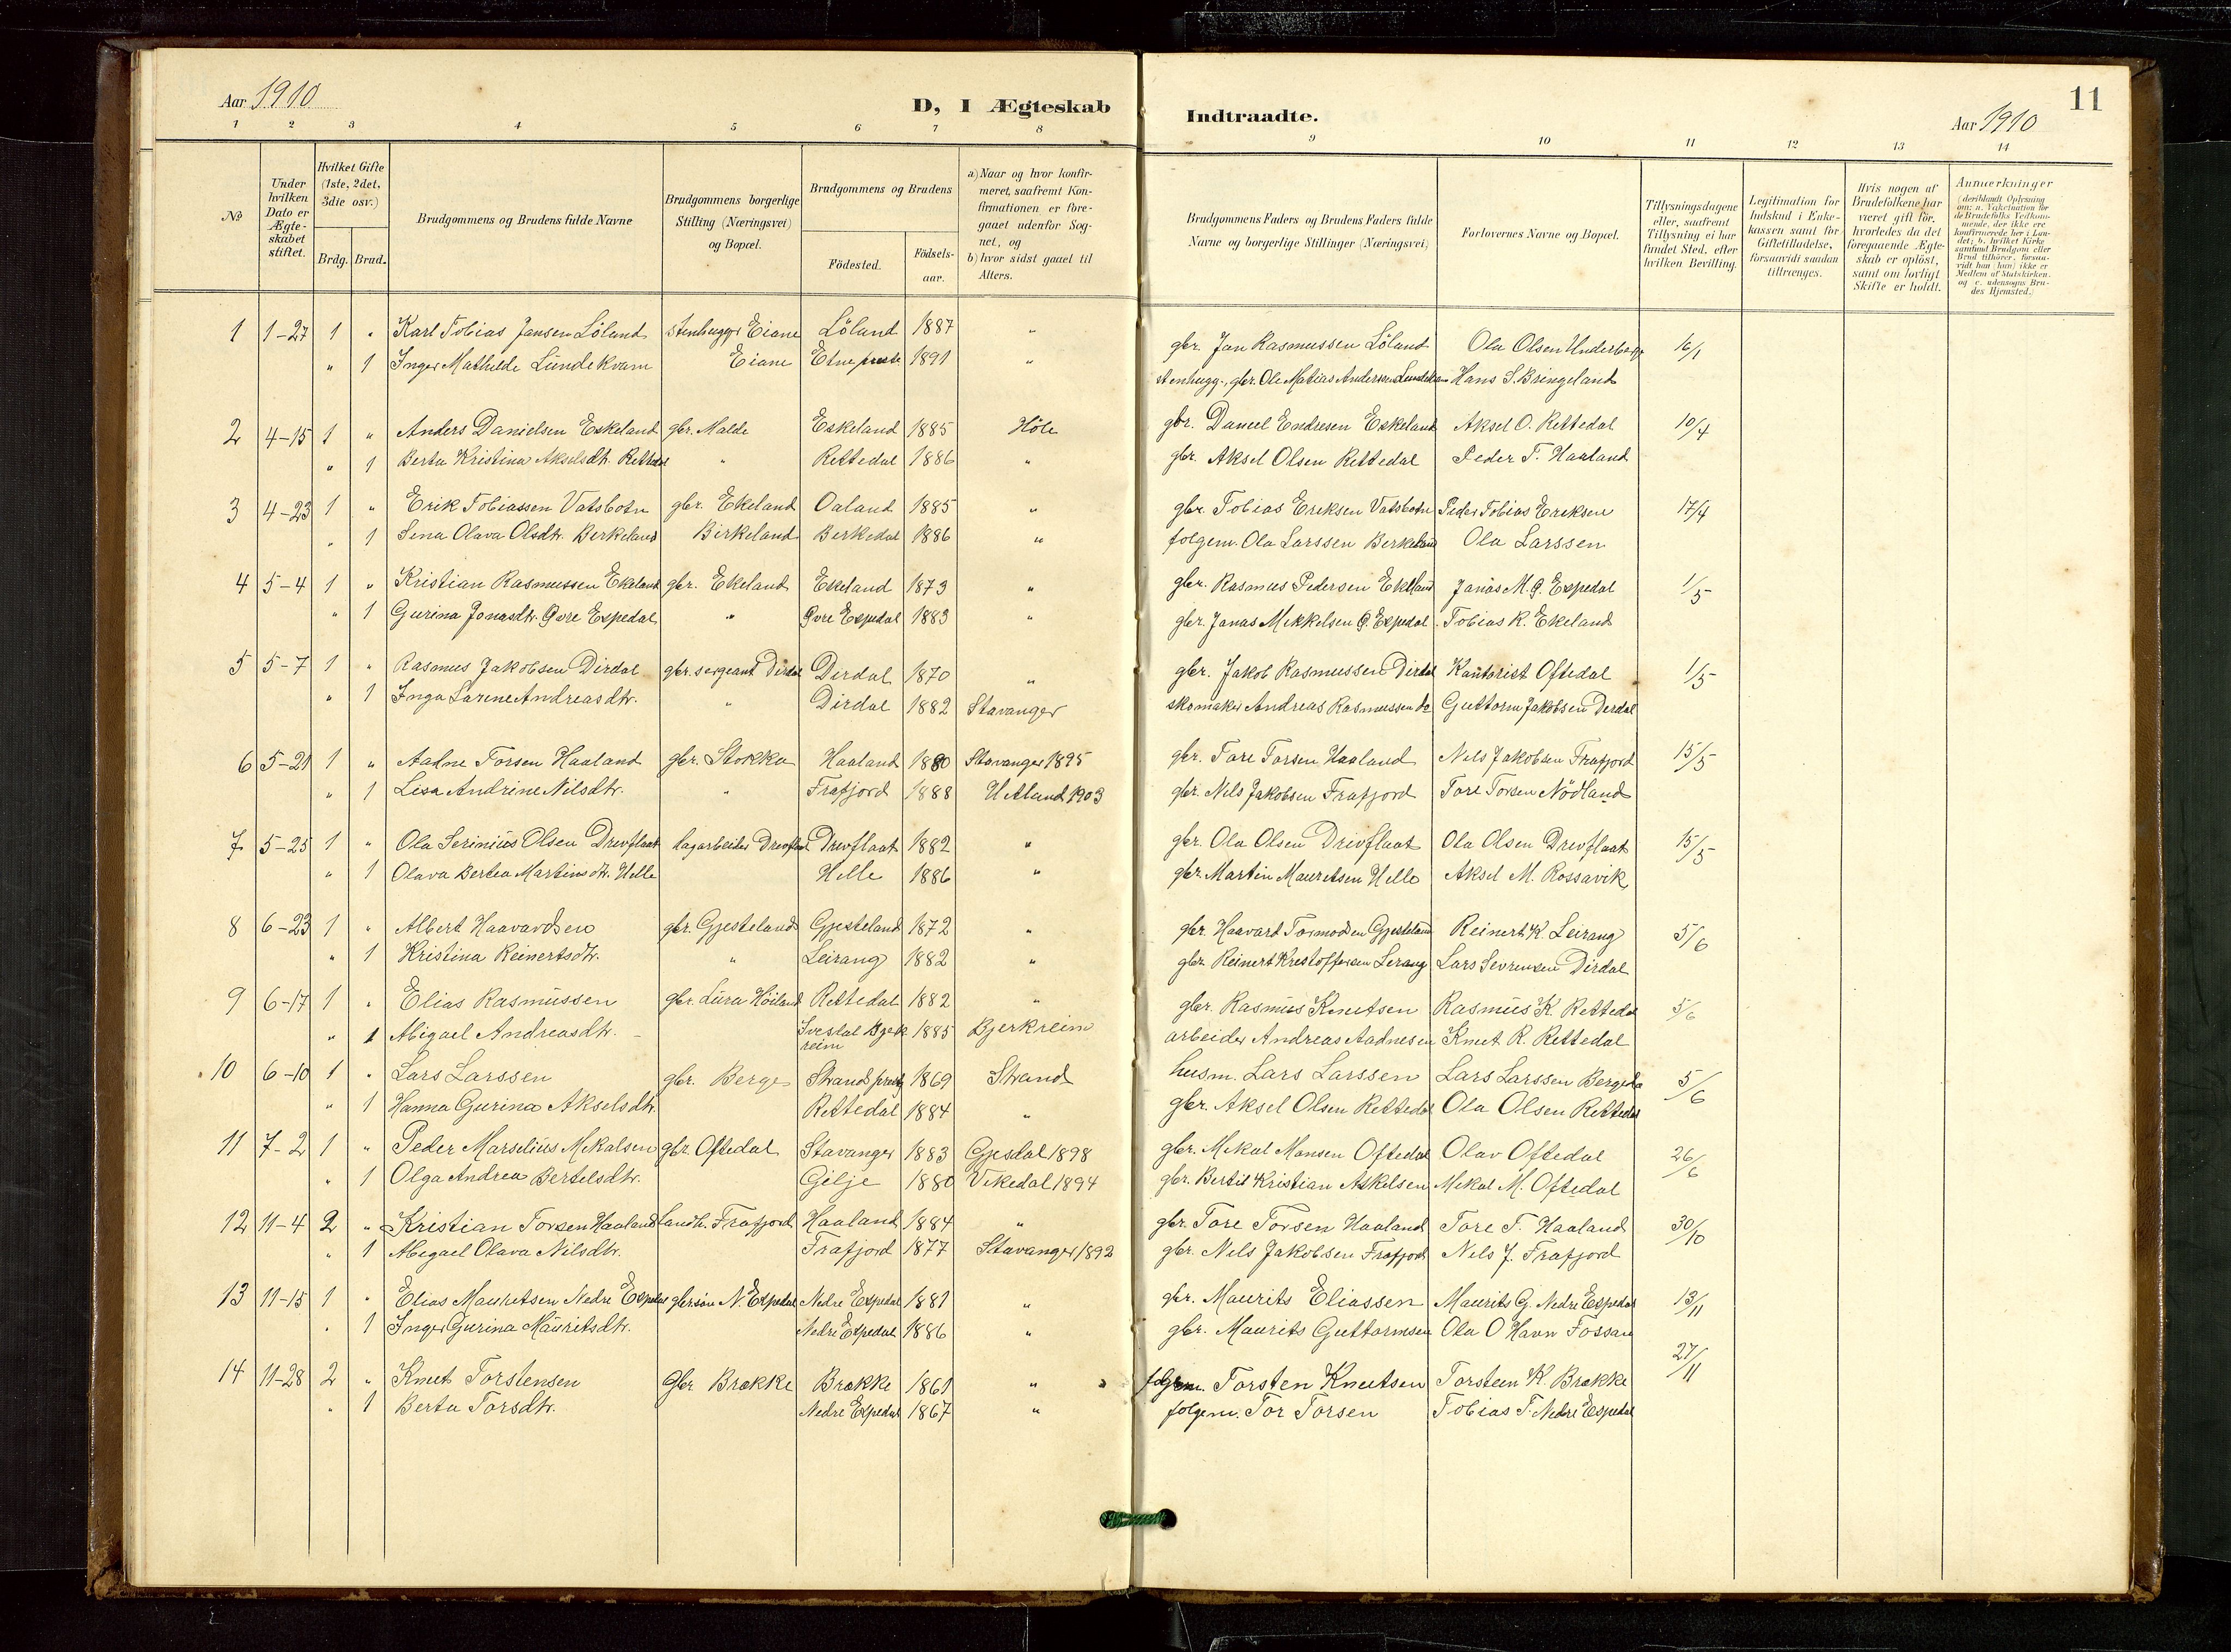 Aar 1910
D, I Ægteskab
Indtraadte.
Aar 1910
11
1 2 3 4 5 6 7 8 9 10 11 12 13 14
№
Under hvilken Dato er Ægteskabet stiftet.
Hvilket Gifte (1ste, 2det, 3die osv.)
Brdg. Brud.
Brudgommens og Brudens fulde Navne
Brudgommens borgerlige Stilling (Næringsvei) og Bopæl.
Brudgommens og Brudens
Födested.
Födsels-aar.
a) Naar og hvor konfirmeret, saafremt Konfirmationen er foregaaet udenfor Sognet, og
b) hvor sidst gaaet til Alters.
Brudgommens Faders og Brudens Faders fulde Navne og borgerlige Stillinger (Næringsvei)
Forlovernes Navne og Bopæl.
Tillysningsdagene eller, saafremt Tillysning ei har fundet Sted, efter hvilken Bevilling.
Legitimation for Indskud i Enkekassen samt for Giftetilladelse, forsaavidt saadan tiltrænges.
Hvis nogen af Brudefolkene har været gift för, hvorledes da det foregaaende Ægteskab er oplöst, samt om lovligt Skifte er holdt.
Anmerkninger (deriblandt Oplysning om: a. Vakcination for de Brudefolks Vedkommende, der ikke ere konfirmerede her i Landet; b. hvilket Kirkesamfund Brudgom eller Brud tilhörer, forsaavidt han (hun) ikke er Medlem af Statskirken, og c. udensogns Brudes Hjemsted.)
1 1-27 1 " Karl Tobias Jansen Löland stenhugger Eiane Löland 1887 " gbr. Jan Rasmussen Löland Ola Olsen Underberge 16/1
" 1 Inger Mathilde Lundekvam Eiane Etne præste. 1891 " stenhugg., gbr. Ole Matias Andersen Lundekvam Hans S. Bringeland
2 4-15 1 " Anders Danielsen Eskeland gbr. Malde Eskeland 1885 Höle gbr. Daniel Endresen Eskeland Aksel O. Rettedal 10/4
" 1 Berta Kristina Akselsdtr. Rettedal " Rettedal 1886 " gbr. Aksel Olsen Rettedal Peder T. Haaland
3 4-23 1 " Erik Tobiassen Vatsbotn gbr. Ekeland Oaland 1885 " gbr. Tobias Eriksen Vatsbotn Peder Tobias Eriksen 17/4
" 1 Sena Olava Olsdtr. Berkeland Birkeland Berkedal 1886 " folgem. Ola Larssen Berkeland Ola Larssen
4 5-4 1 " Kristian Rasmussen Ekeland gbr. Ekeland Ekeland 1873 " gbr. Rasmus Pedersen Ekeland Janas M. Ø. Espedal 1/5
" 1 Gurina Jonasdtr. Øvre Espedal " Øvre Espedal 1883 " gbr. Janas Mikkelsen Ø. Espedal Tobias R. Ekeland
5 5-7 1 " Rasmus Jakobsen Dirdal gbr. sergeant Dirdal Dirdal 1870 " gbr. Jakob Rasmussen Dirdal Kantorist Oftedal 1/5
" 1 Inga Lavene Andreasdtr. " Dirdal 1882 Stavanger skomaker Andreas Rasmussen do Guttorm Jakobsen Dirdal
6 5-21 1 " Aadne Torsen Haaland gbr. Stokka Haaland 1880 Stavanger 1895 gbr. Tore Torsen Haaland Nils Jakobsen Frafjord 15/5
" 1 Lisa Andrine Nilsdtr. " Frafjord 1888 Hetland 1903 gbr. Nils Jakobsen Frafjord Tore Torsen Nödland
7 5-25 1 " Ola Serinius Olsen Drevflaat dagarbeider Drevflaat Drevflaat 1882 " gbr. Ola Olsen Drivflaat Ola Olsen Drevflaat 15/5
" 1 Olava Bertea Martinsdtr. Helle Helle 1886 " gbr. Martin Mauritsen Helle Aksel M. Rossavik
8 6-23 1 " Albert Haavardsen gbr. Gjesteland Gjesteland 1872 " gbr. Haavard Tormodsen Gjesteland Reinert K. Leirang 5/6
" 1 Kristina Reinertsdtr. " Leirang 1882 " gbr. Reinert Kristoffersen Lerang Lars Sevrinsen Dirdal
9 6-17 1 " Elias Rasmussen gbr. Lura Höiland Rettedal 1882 " gbr. Rasmus Knutsen Rasmus K. Rettedal 5/6
" 1 Abigael Andreasdtr. Ivesdal Bjerkreim 1885 Bjerkreim arbeider Andreas Aadnesen Knut R. Rettedal
10 6-10 1 " Lars Larssen gbr. Berge Strand prestg 1869 Strand husm. Lars Larssen Lars Larssen Berge 5/6
" 1 Hanna Gurina Akselsdtr. Rettedal 1884 " gbr. Aksel Olsen Rettedal Ola Olsen Rettedal
11 7-2 1 " Peder Marselius Mikalsen gbr. Oftedal Stavanger 1883 Gjesdal 1898 gbr. Mikal Monsen Oftedal Olav Oftedal 26/6
" 1 Olga Andrea Bertelsdtr. Gilje 1880 Vikedal 1894 gbr. Bertil Kristian Askelsen Mikal M. Oftedal
12 11-4 2 " Kristian Torsen Haaland Landh. Frafjord Haaland 1884 " gbr. Tore Torsen Haaland Tore T. Haaland 30/10
" 1 Abegael Olava Nilsdtr. Frafjord 1877 Stavanger 1892 gbr. Nils Jakobsen Frafjord Nils J. Frafjord
13 11-15 1 " Elias Mauritsen Nedre Espedal gbrsön N. Espedal Nedre Espedal 1881 " gbr. Maurits Eliassen Maurits G. Nedre Espedal 13/11
" 1 Inger Gurina Mauritsdtr. Nedre Espedal 1886 " gbr. Maurits Guttormsen Ola O Havn Fossan
14 11-28 2 " Knut Torstensen Gbr Brække Brække 1861 " folgem. Torsten Knutsen Torsteen K. Brække 27/11
" 1 Berta Torsdtr. Nedre Espedal 1867 " folgem. Tor Torsen Tobias T. Nedre Espedal